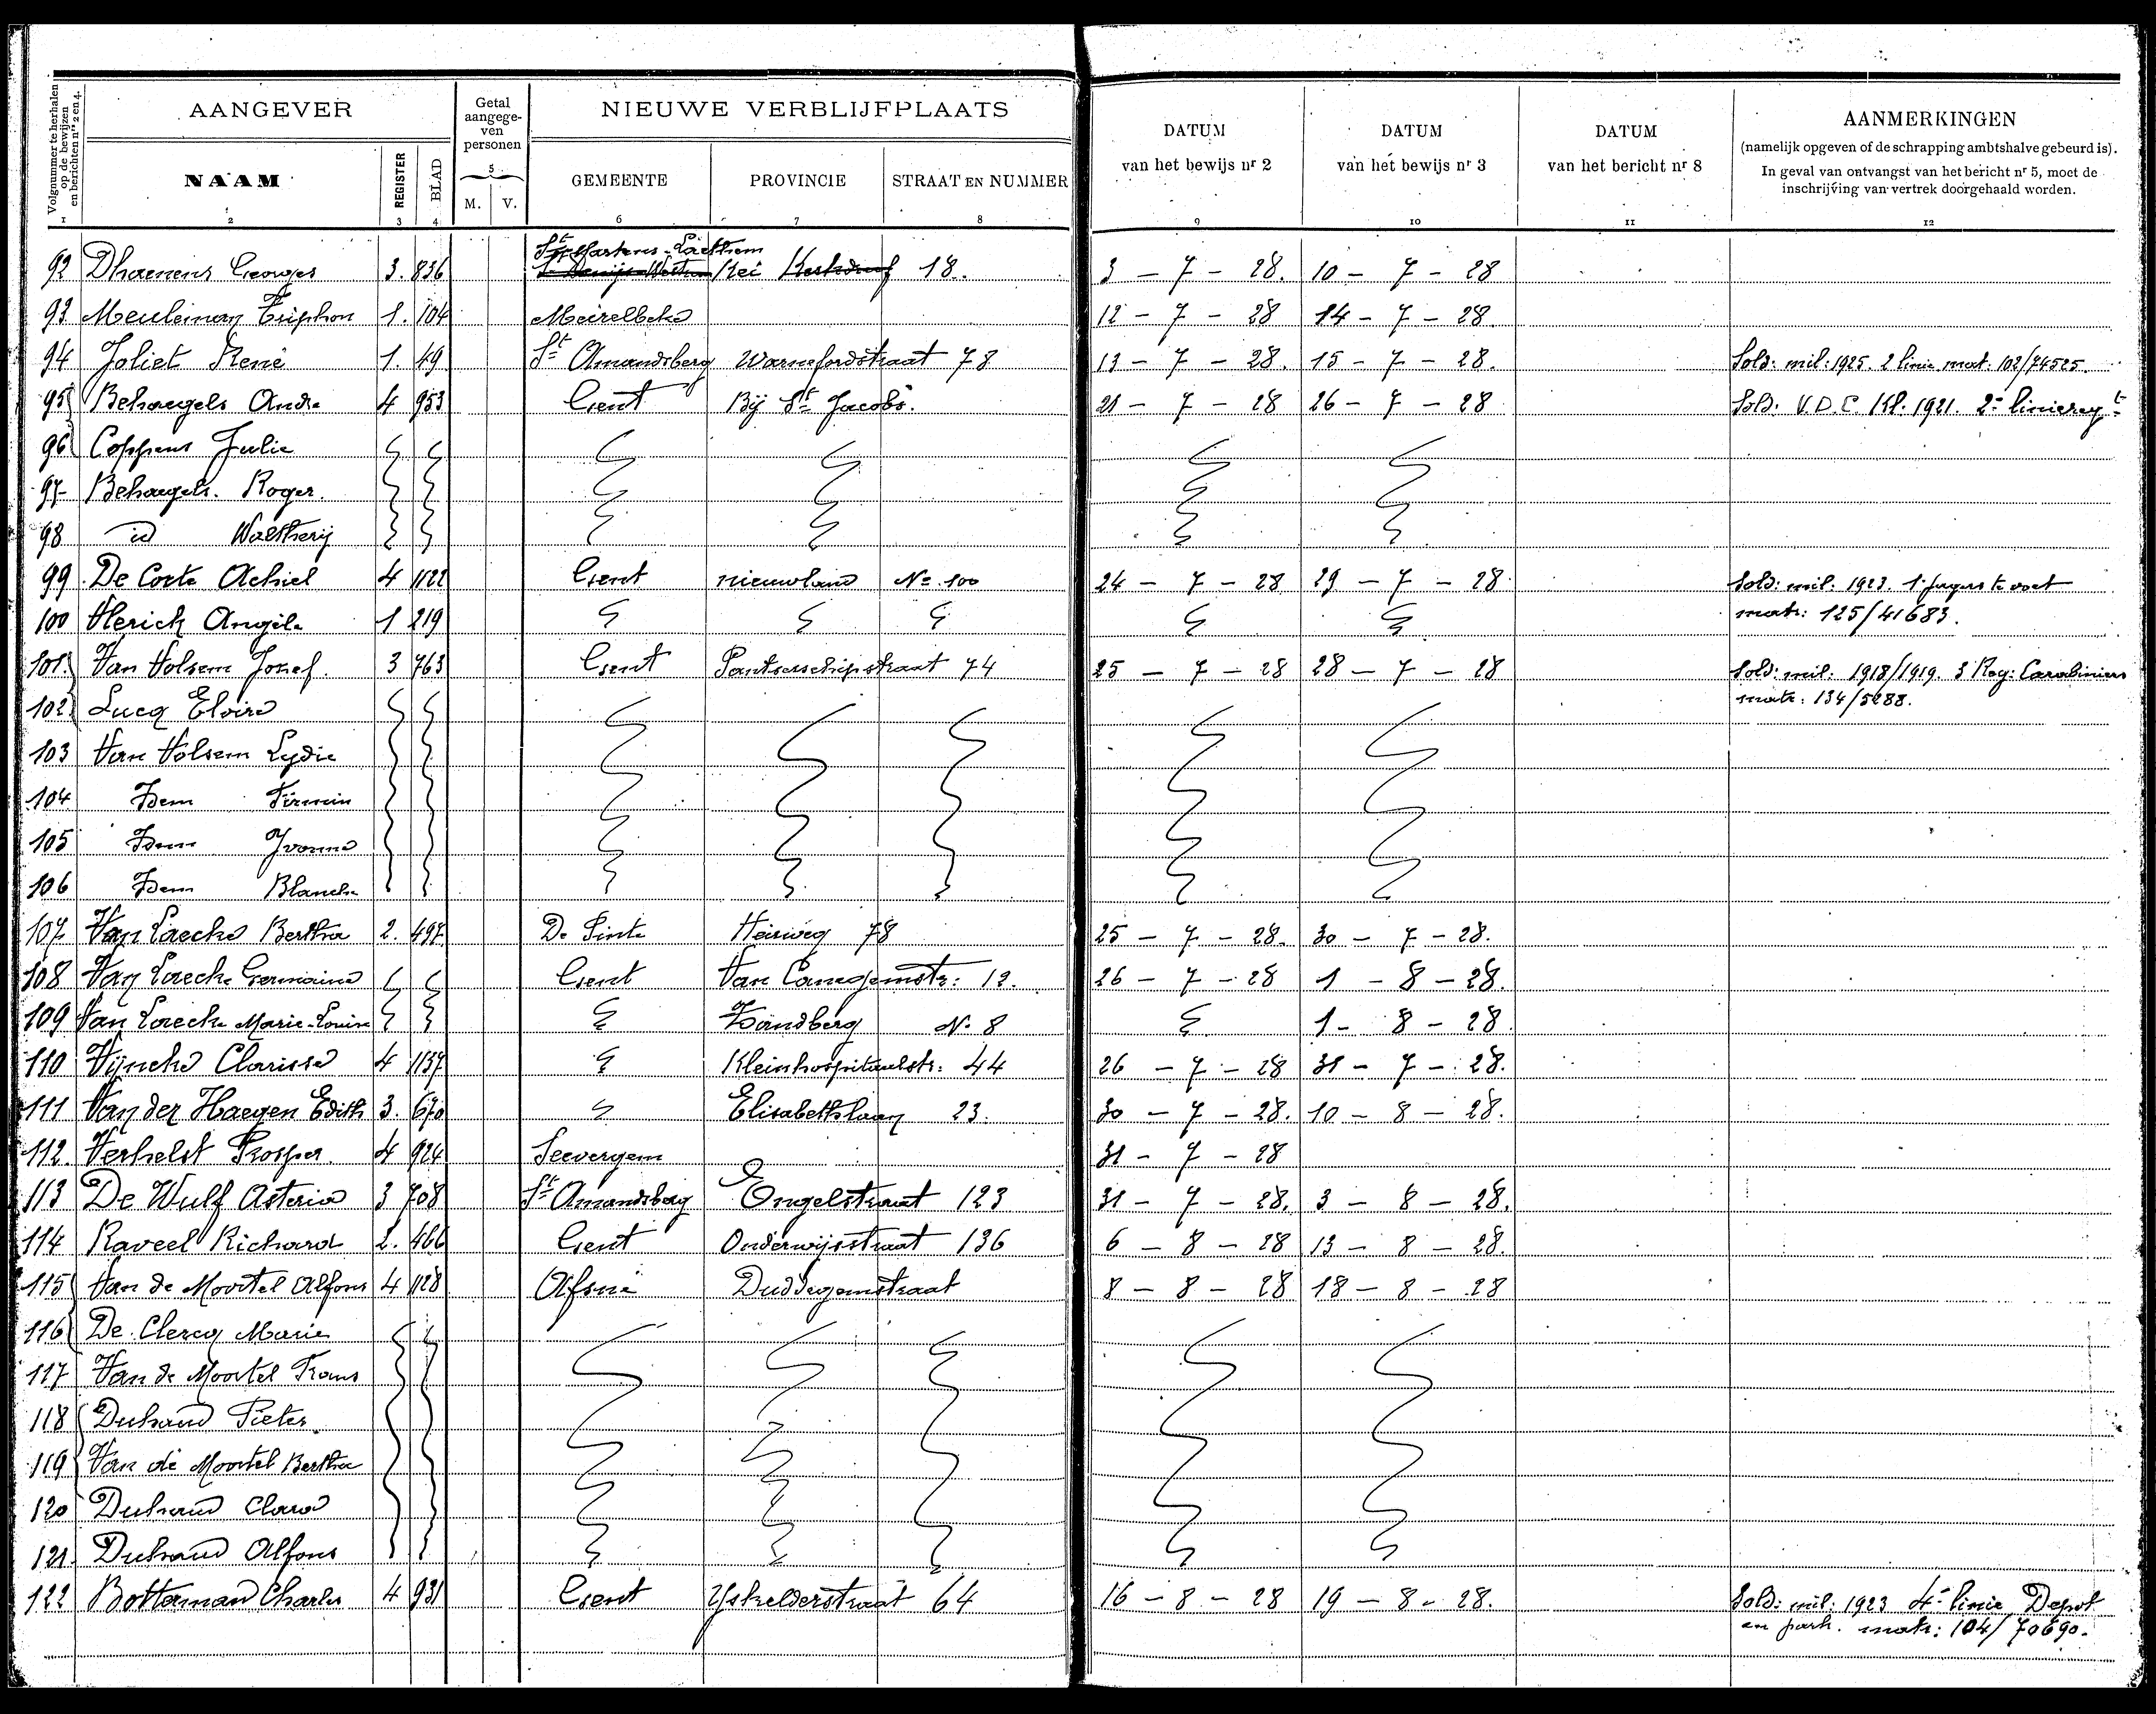 Volgnummer te herhalen op de bewijzen en berichten nrs 2 en 4.
AANGEVER
Getal aangegeven personen
NIEUWE VERBLIJFPLAATS
DATUM van het bewijs nr 2
DATUM van het bewijs nr 3
DATUM van het bericht nr 8
AANMERKINGEN
(namelijk opgeven of de schrapping ambtshalve gebeurd is).
In geval van ontvangst van het bericht nr 5, moet de
inschrijving van vertrek doorgehaald worden.
NAAM REGISTER BLAD 5 M. V. GEMEENTE PROVINCIE STRAAT EN NUMMER
1 2 3 4 6 7 8 9 10 11 12
St Martens-Laethem
92 Dhaenens Georges 3. 836 18. 3 - 7 - 28. 10 - 7 - 28
93 Meuleman Triphon 1. 104 Meirelbeke 12 - 7 - 28 14 - 7 - 28.
94 Joliet René 1. 49 St Amandsberg Warnefordstraat 78 13 - 7 - 28. 15 - 7 - 28. Sold: mil: 1925. 2 linie mat: 102/74525.
95 Behaegels Andre 4 953 Gent Bij St Jacobs. 21 - 7 - 28 26 - 7 - 28 Sold. V.D.C. Kl. 1921. 2e liniereg t
96 Coppens Julie
97 Behaegels. Roger.
98 id Waltherij
99 De Corte Achiel 4 1122 Gent nieuwland No 100 24 - 7 - 28 29 - 7 - 28 Sold: mil: 1923. 1 jagers te voet
matr: 125/41683.
100 Herick Angèle 1 219
101 Van Holsem Jozef. 3 763 Gent Pantserschipstraat 74 25 - 7 - 28 28 - 7 - 28 Sold: mil: 1918/1919. 3 Reg: Carabiniers
matr: 134/5288.
102 Lucq Elvire
103 Van Holsem Lydie
104 Idem Firmin
105 Idem Yvonne
106 Idem Blanche
107 Van Laecke Bertha 2. 497 De Pinte Heirweg 78 25 - 7 - 28. 30 - 7 - 28.
108 Van Laecke Germaine Gent Van Canegemstr: 12. 26 - 7 - 28 1 - 8 - 28.
109 Van Laecke Marie-Louise Zandberg No 8 1 - 8 - 28
110 Wijncke Clarisse 4 1137 Kleinhospitaalstr: 44 26 - 7 - 28 31 - 7 - 28.
111 Van der Haegen Edith 3. 670 Elisabethlaan 23. 30 - 7 - 28. 10 - 8 - 28.
112. Verhelst Prosper. 4 924 Seevergem 31 - 7 - 28
113 De Wulf Asterie 3 708 St Amandsberg Engelstraat 123 31 - 7 - 28. 3 - 8 - 28.
114 Raveel Richard 2. 466 Gent Onderwijsstraat 136 6 - 8 - 28 13 - 8 - 28.
115 Van de Moortel Alfons 4 1128 Afsné Duddegemstraat 8 - 8 - 28 18 - 8 - 28
116 De Clercq Marie
117 Van de Moortel Frans
118 Duhaud Pieter
119 Van de Moortel Bertha
120 Duhaud Clara
121. Duhaud Alfons
122 Botterman Charles 4 931 Gent Yskelderstraat 64 16 - 8 - 28 19 - 8 - 28. Sold: mil: 1923 4e linie Depot
en park. matr: 104/70690.